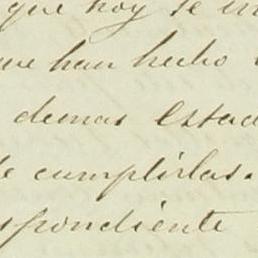 que hoy se
que han hecho
demas estad
de cumplirlas.
spondiente